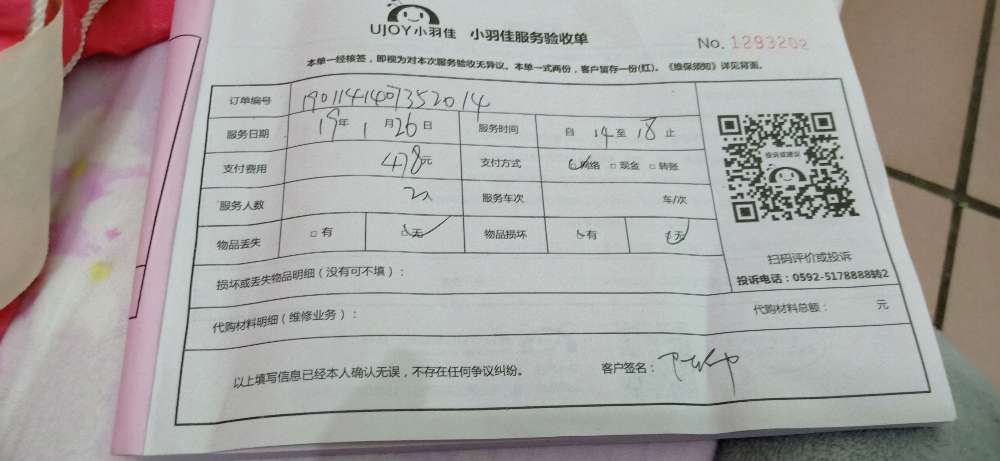 UJOY小羽佳 小羽佳服务验收单
No. 1293202
本单一经接签，即视为对本次服务验收无异议。本单一式两份，客户留存一份(红)。《维保须知》详见背面。
订单编号 1901141407352014
服务日期 19年 1月 26日 服务时间 自 14 至 18 止
支付费用 478元 支付方式 网络 □ 现金 □ 转账
服务人数 2人 服务车次 车/次
物品丢失 □ 有 无 物品损坏 有 无
投诉或建议
扫码评价或投诉
投诉电话：0592-5178888转2
损坏或丢失物品明细（没有可不填）：
代购材料明细（维修业务）： 代购材料总额： 元
以上填写信息已经本人确认无误，不存在任何争议纠纷。 客户签名：